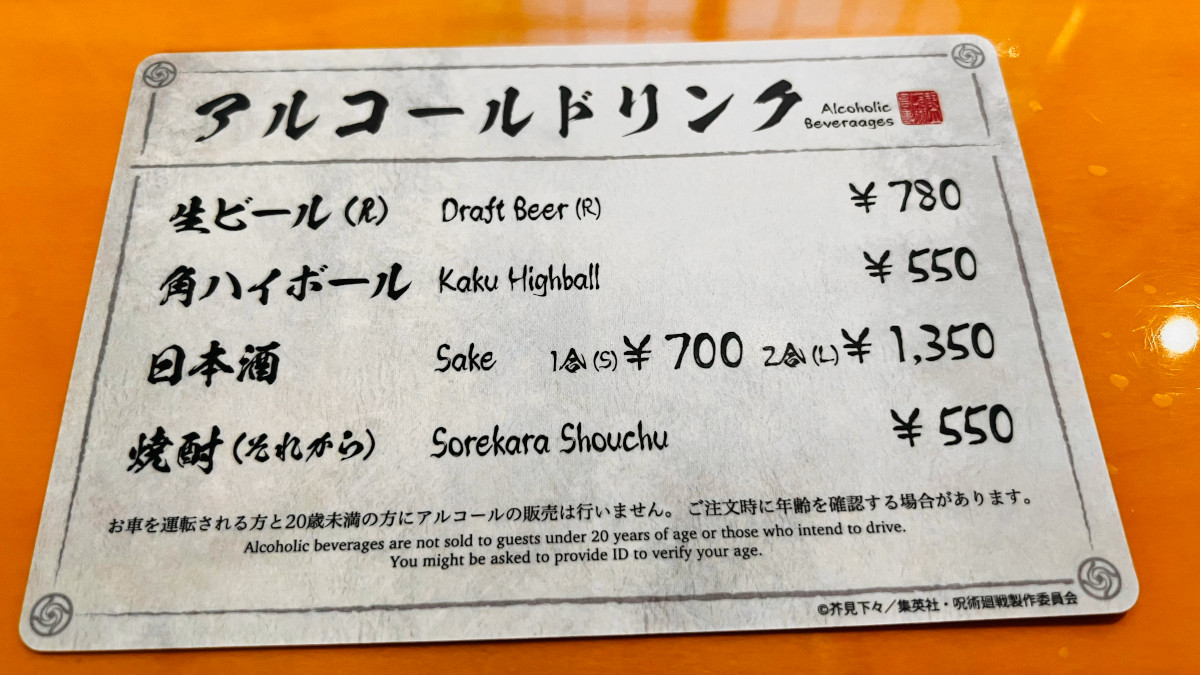 アルコールドリンク Alcoholic
Beveraages
生ビール(R) Draft Beer (R) ¥ 780
角ハイボール Kaku Highball ¥ 550
日本酒 Sake 1合(S) ¥ 700 2合(L) ¥ 1,350
焼酎(それから) Sorekara Shouchu ¥ 550
お車を運転される方と20歳未満の方にアルコールの販売は行いません。 ご注文時に年齢を確認する場合があります。
Alcoholic beverages are not sold to guests under 20 years of age or those who intend to drive.
You might be asked to provide ID to verify your age.
©芥見下々/集英社・呪術廻戦製作委員会